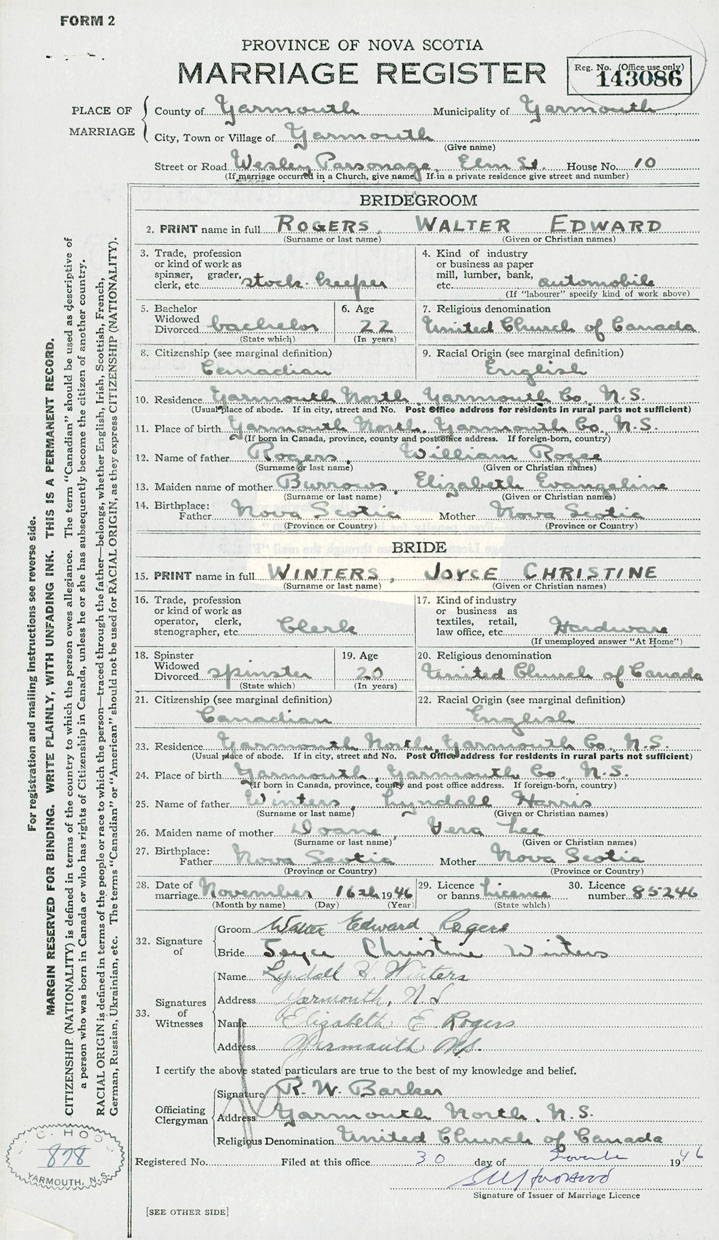 FORM 2
PROVINCE OF NOVA SCOTIA
MARRIAGE REGISTER
Reg. No. (Office use only)
143086
PLACE OF MARRIAGE
County of Yarmouth Municipality of Yarmouth
City, Town or Village of Yarmouth
(Give name)
Street or Road Wesley Parsonage, Elm St. House No. 10
(If marriage occurred in a Church, give name) If in a private residence give street and number)
BRIDEGROOM
2. PRINT name in full ROGERS, WALTER EDWARD
(Surname or last name) (Given or Christian names)
3. Trade, profession or kind of work as spinner, grader, clerk, etc. stock-keeper
4. Kind of industry or business as paper mill, lumber, bank, etc. automobile
(If "labourer" specify kind of work above)
5. Bachelor Widowed Divorced bachelor
(State which)
6. Age 22
(In years)
7. Religious denomination
United Church of Canada
8. Citizenship (see marginal definition)
Canadian
9. Racial Origin (see marginal definition)
English
10. Residence Yarmouth North, Yarmouth Co., N.S.
(Usual place of abode. If in city, street and No. Post Office address for residents in rural parts not sufficient)
11. Place of birth Yarmouth North, Yarmouth Co., N.S.
(If born in Canada, province, county and post office address. If foreign-born, country)
12. Name of father Rogers, William
(Surname or last name) (Given or Christian names)
13. Maiden name of mother Burrows, Elizabeth Evangeline
(Surname or last name) (Given or Christian names)
14. Birthplace: Father Nova Scotia Mother Nova Scotia
(Province or Country) (Province or Country)
BRIDE
15. PRINT name in full WINTERS, JOYCE CHRISTINE
(Surname or last name) (Given or Christian names)
16. Trade, profession or kind of work as operator, clerk, stenographer, etc. Clerk
17. Kind of industry or business as textiles, retail, law office, etc. Hardware
(If unemployed answer "At Home")
18. Spinster Widowed Divorced spinster
(State which)
19. Age 20
(In years)
20. Religious denomination
United Church of Canada
21. Citizenship (see marginal definition)
Canadian
22. Racial Origin (see marginal definition)
English
23. Residence Yarmouth North, Yarmouth Co., N.S.
(Usual place of abode. If in city, street and No. Post Office address for residents in rural parts not sufficient)
24. Place of birth Yarmouth, Yarmouth Co., N.S.
(If born in Canada, province, county and post office address. If foreign-born, country)
25. Name of father Winters, Lyndall Harris
(Surname or last name) (Given or Christian names)
26. Maiden name of mother Doane, Vera Lee
(Surname or last name) (Given or Christian names)
27. Birthplace: Father Nova Scotia Mother Nova Scotia
(Province or Country) (Province or Country)
28. Date of marriage November 16th 1946
(Month by name) (Day) (Year)
29. Licence or banns Licence
(State which)
30. Licence number 85246
32. Signature of
Groom Walter Edward Rogers
Bride Joyce Christine Winters
33. Signatures of Witnesses
Name Lyndall H. Winters
Address Yarmouth, N.S
Name Elizabeth E Rogers
Address Yarmouth N.S.
I certify the above stated particulars are true to the best of my knowledge and belief.
Officiating Clergyman
Signature R. W. Barker
Address Yarmouth North, N.S.
Religious Denomination United Church of Canada
Registered No. Filed at this office 30 day of 1946
Signature of Issuer of Marriage Licence
[SEE OTHER SIDE]
For registration and mailing instructions see reverse side.
MARGIN RESERVED FOR BINDING. WRITE PLAINLY, WITH UNFADING INK. THIS IS A PERMANENT RECORD.
CITIZENSHIP (NATIONALITY) is defined in terms of the country to which the person owes allegiance. The term "Canadian" should be used as descriptive of
a person who was born in Canada or who has rights of Citizenship in Canada, unless he or she has subsequently become the citizen of another country.
RACIAL ORIGIN is defined in terms of the people or race to which the person—traced through the father—belongs, whether English, Irish, Scottish, French,
German, Russian, Ukrainian, etc. The terms "Canadian" or "American" should not be used for RACIAL ORIGIN, as they express CITIZENSHIP (NATIONALITY).
878
YARMOUTH, N.S.